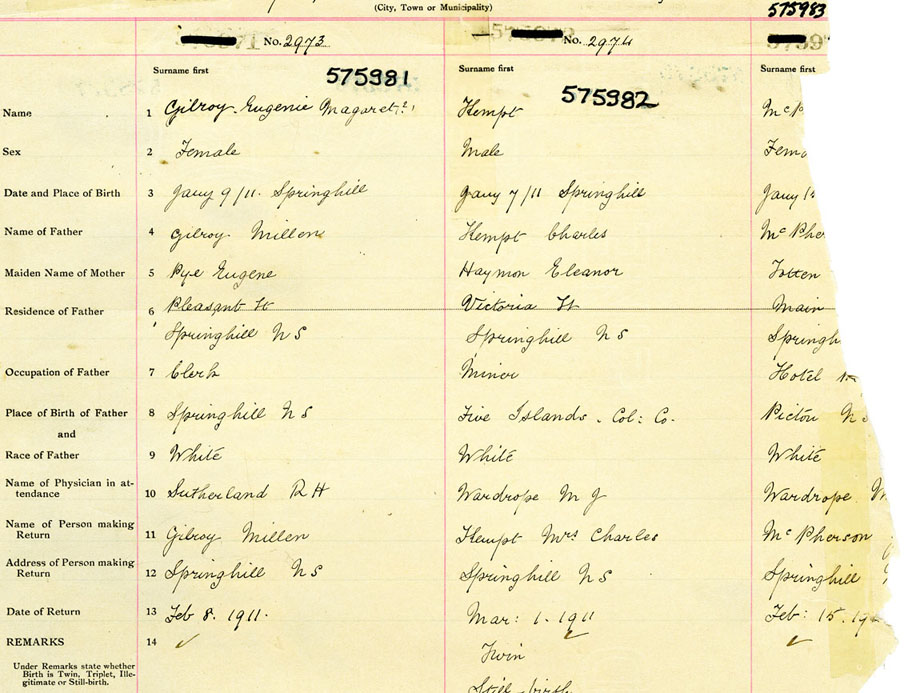 (City, Town or Municipality)
575983
No. 2973
No. 2974
Surname first
Surname first
Surname first
575981
575982
Name 1 Gilroy Eugenie Hempt McP
Sex 2 Female Male Fem
Date and Place of Birth 3 Jany 9/11. Springhill Jany 7/11 Springhill Jany
Name of Father 4 Gilroy Millen Hempt Charles McPher
Maiden Name of Mother 5 Pye Eugene Haymon Eleanor Totten
Residence of Father 6 Pleasant St Victoria St Main
Springhill N S Springhill N S Springh
Occupation of Father 7 Clerk Miner Hotel
Place of Birth of Father 8 Springhill N S Five Islands. Col: Co. Pictou N S
and
Race of Father 9 White White White
Name of Physician in at-
tendance 10 Sutherland R H Wardrope M J Wardrope M
Name of Person making
Return 11 Gilroy Millen Hempt Mrs Charles McPherson
Address of Person making
Return 12 Springhill N S Springhill N S Springhill
Date of Return 13 Feb 8. 1911. Mar: 1. 1911 Feb: 15. 19
REMARKS 14 ✓ ✓ ✓
Twin
Under Remarks state whether
Birth is Twin, Triplet, Ille-
gitimate or Still-birth.
Still-birth